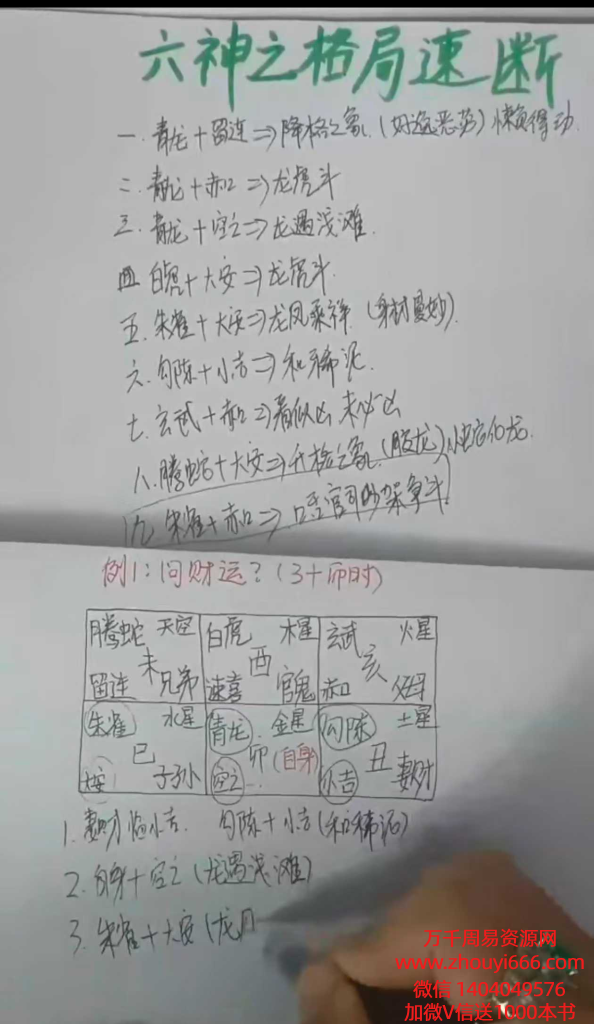 六神之格局速断
一. 青龙+留连⇒降格之象.(好逸恶劳)懒得动.
二. 青龙+赤口⇒龙虎斗
三. 青龙+空亡⇒龙遇浅滩.
四 白虎+大安⇒龙虎斗.
五. 朱雀+大安⇒龙凤乘祥.(身材曼妙).
六. 勾陈+小吉⇒和稀泥.
七. 玄武+赤口⇒看似凶 未必凶
八. 腾蛇+大安⇒升格之象.(腾龙)小蛇化龙.
九. 朱雀+赤口⇒口舌官司吵架争斗.
例1:问财运?(3+卯时)
腾蛇 天空 白虎 木星 玄武 火星
未 酉 亥
留连 兄弟 速喜 官鬼 赤口 父母
朱雀 水星 青龙. 金星 勾陈 土星
巳 卯(自身) 丑
大安 子孙 空亡 小吉 妻财
1. 妻财临小吉. 勾陈+小吉(和稀泥)
2. 自身+空亡(龙遇浅滩)
3. 朱雀+大安(龙
万千周易资源网
www.zhouyi666.com
微信 1404049576
加微V信送1000本书